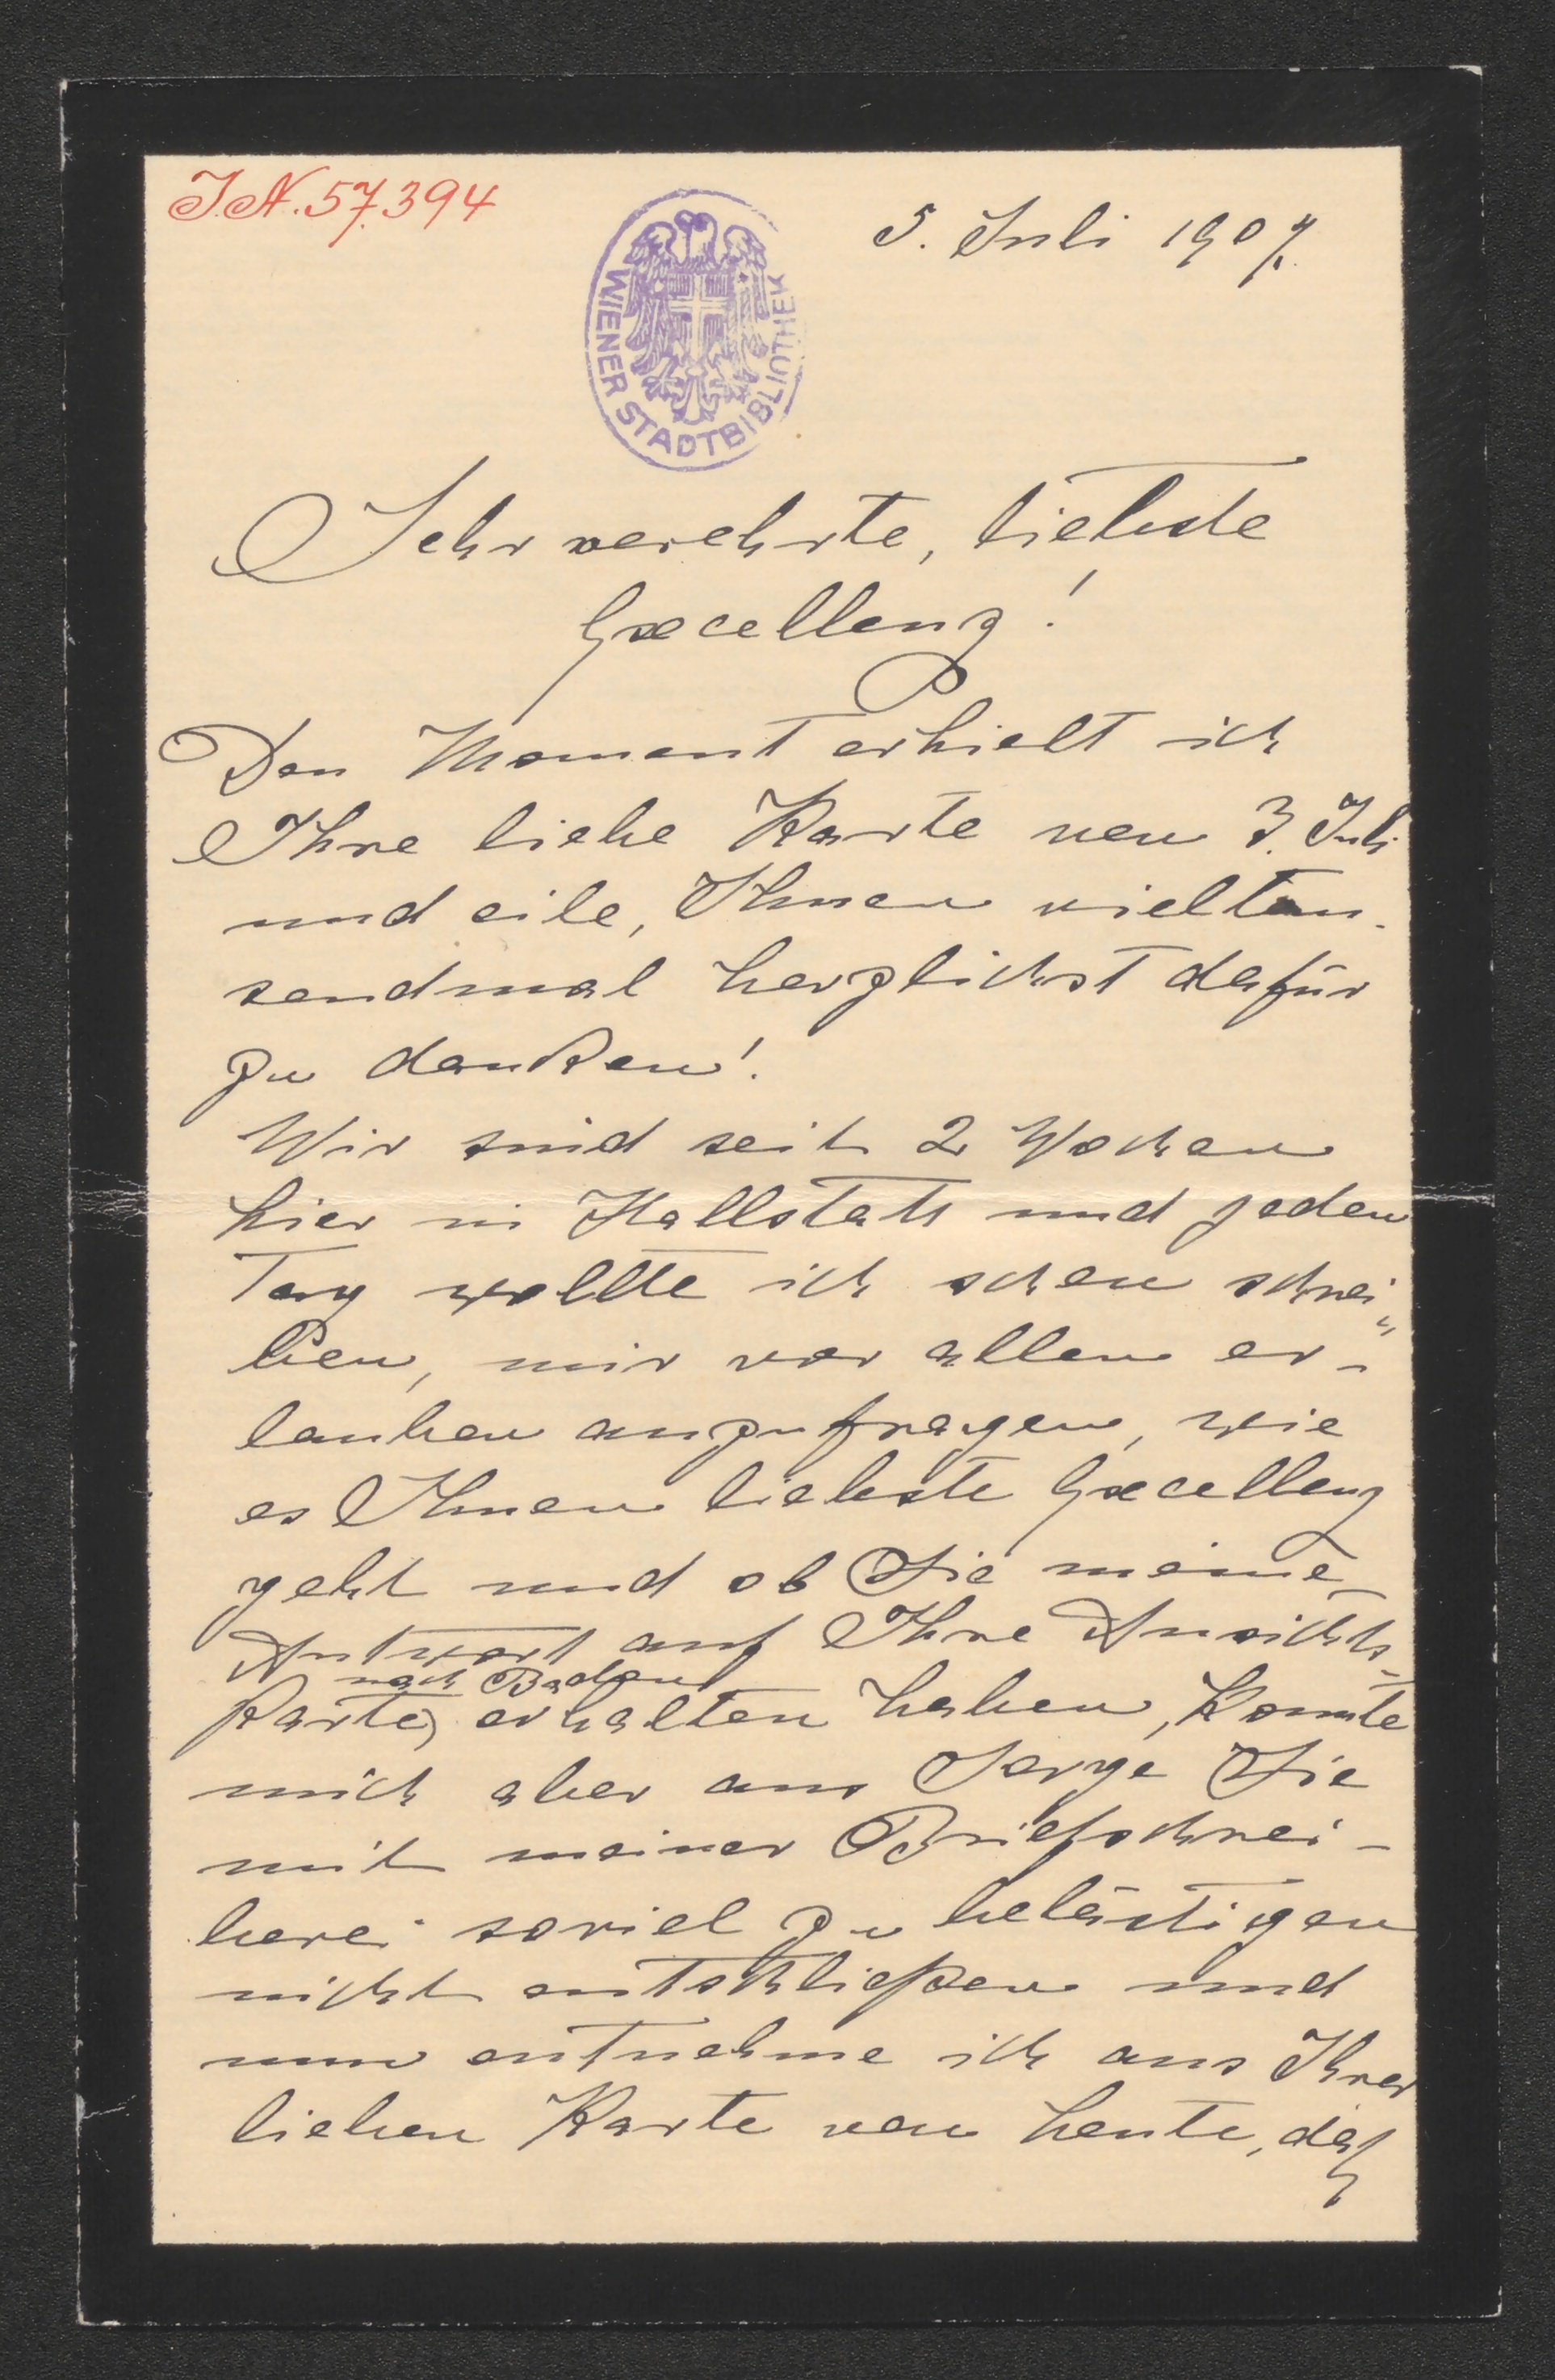 J.N. 57.394
WIENER STADTBIBLIOTHEK
5. Juli 1907.
Sehr verehrte, liebste
Excellenz!
Den Moment erhielt ich
Ihre liebe Karte von 3. Juli
und eile, Ihnen vieltau-
sendmal herzlichst dafür
zu danken!
Wir sind seit 2 Wochen
hier in Hallstatt und jeden
Tag wollte ich schon schrei„
ben, mir vor allem er-
lauben anzufragen, wie
es Ihnen liebste Excellenz
geht und ob Sie meine
Antwort auf Ihre Ansichts-
nach Baden
karte) erhalten haben, konnte
mich aber aus Sorge Sie
mit meiner Briefschrei-
berei soviel zu belästigen
nicht entschließen und
nun entnehme ich aus Ihrer
lieben Karte von heute, daß